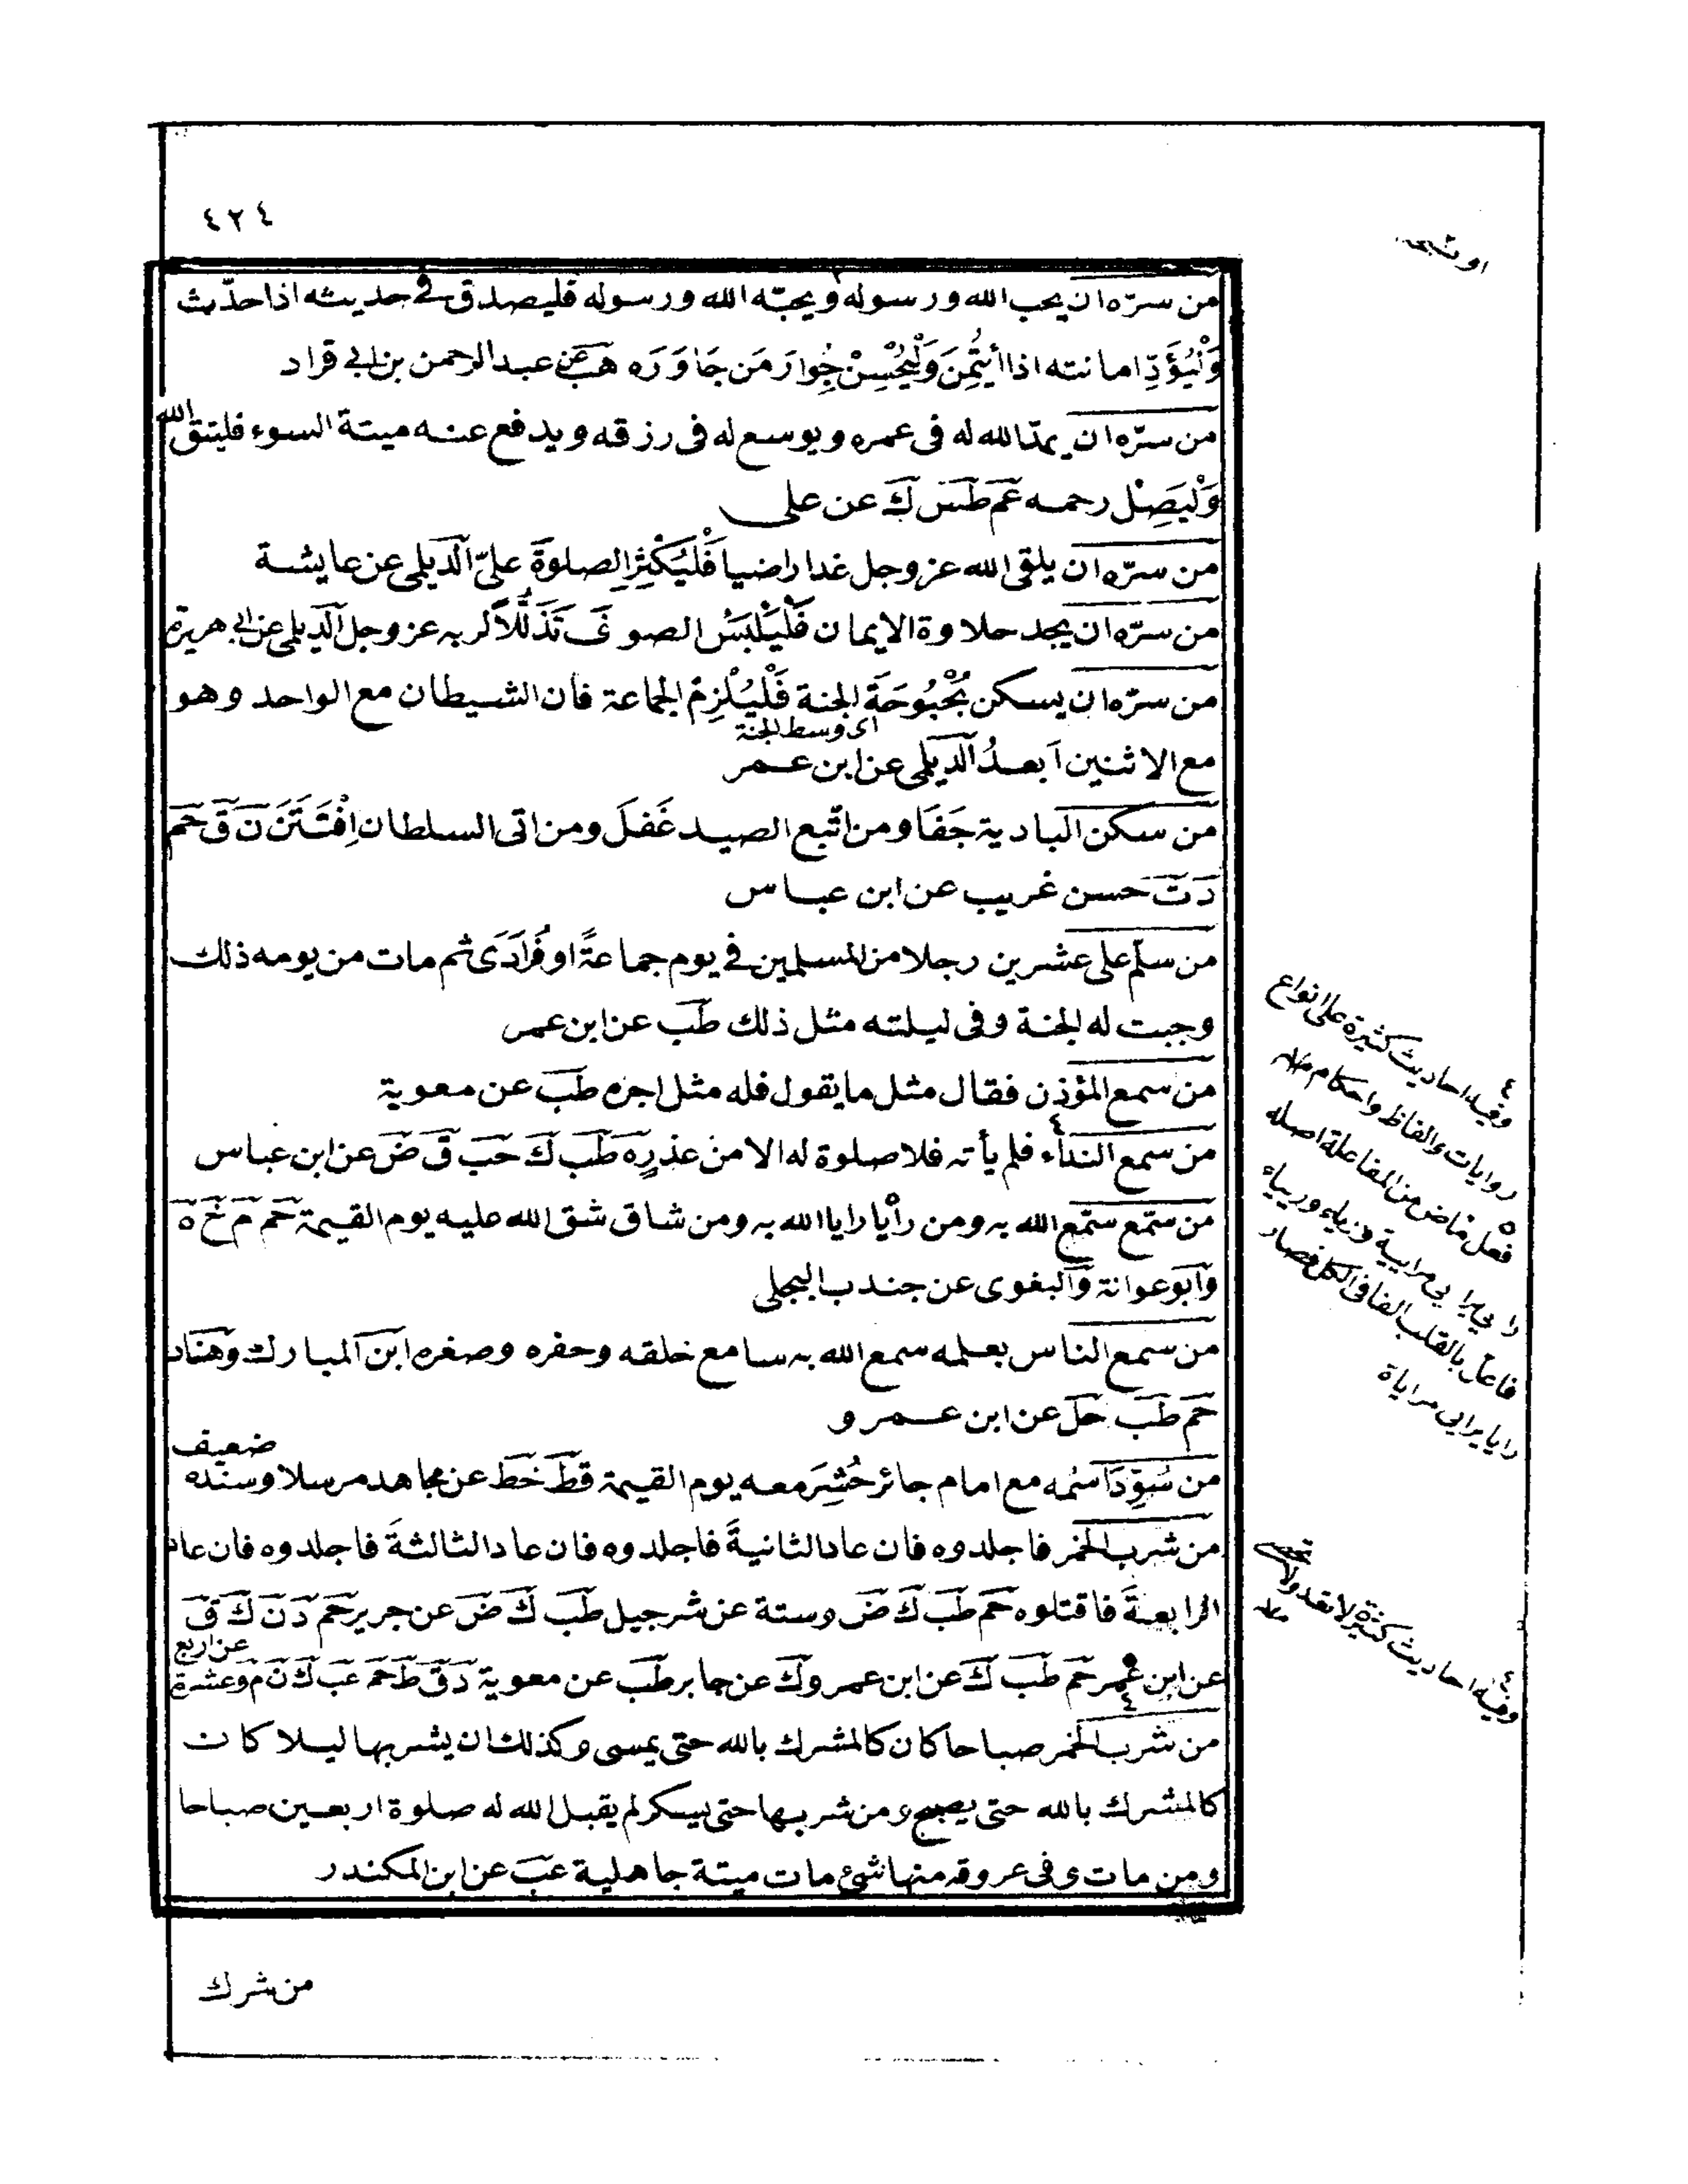 ٤٢٤
من سرّه ان يحب الله ورسوله ويحبّه الله ورسوله فليصدق في حديثه اذا حدّث
وَلْيُؤَدِّ امانته اذا أيتُمِنَ وَلْيُحْسِنْ جُوارَ مَن جَاوَرَه هب عن عبد الرحمن بن ابي قراد
من سرّه ان يمدّ الله له فى عمره ويوسع له فى رزقه ويدفع عنه ميتة السوء فليتق الله
وَلْيَصِلْ رحمه عم طس ك عن على
من سرّه ان يلقى الله عز وجل غدا راضيا فَلْيُكْثِرِ الصلوةَ علىّ الديلمى عن عايشة
من سرّه ان يجد حلاوة الايمان فَلْيَلْبَسُ الصوفَ تَذَلُّلاً لربه عز وجل الديلمى عن ابى هريرة
من سرّه ان يسكن بُحْبُوحَةَ الجنة فَلْيُلْزِمْ الجماعة فان الشيطان مع الواحد وهو
اى وسط الجنة
مع الاثنين اَبعدُ الديلمى عن ابن عمر
من سكن البادية جَفَا ومن اتّبع الصيد غَفَلَ ومن اتى السلطان اِفْتَتَنَ ن ق حم
د ت حسن غريب عن ابن عباس
من سلّم على عشرين رجلا من المسلمين في يوم جماعةً او فُرَادَى ثم مات من يومه ذلك
وجبت له الجنة وفى ليلته مثل ذلك طب عن ابن عمر
من سمع المؤذن فقال مثل ما يقول فله مثل اجره طب عن معوية
من سمع النداء٤ فلم يأته فلا صلوة له الا من عذر ه طب ك حب ق ض عن ابن عباس
من سمّع سمّع الله به ومن رأيا٥ رايا الله به ومن شاق شق الله عليه يوم القيمة حم م خ ه
وابو عوانة والبغوى عن جندب البجلى
من سمع الناس بعلمه سمع الله به سامع خلقه وحقره وصغره ابن المبارك وهناد
حم طب حل عن ابن عمرو
من سُوِّدَ اسمُه مع امام جائر حُشِرَ معه يوم القيمة قط خط عن مجاهد مرسلا وسنده ضعيف
من شرب الخمر فاجلدوه فان عاد الثانيةَ فاجلدوه فان عاد الثالثةَ فاجلدوه فان عاد
الرابعةَ فاقتلوه حم طب ك ض وستة عن شرجيل طب ك ض عن جرير حم د ن ك ق
عن ابن عمر حم طب ك عن ابن عمرو ك عن جابر طب عن معوية د ق ط حم عب ك ن م وعشرة عن اربع
من شرب الخمر٤ صباحا كان كالمشرك بالله حتى يمسى وكذلك ان يشربها ليلا كان
كالمشرك بالله حتى يصبح ومن شربها حتى يسكر لم يقبل الله له صلوة اربعين صباحا
ومن مات وفى عروقه منها شئ مات ميتة جاهلية عب عن ابن المكندر
من شرك
٤
وفيه احاديث كثيرة على انواع
روايات والفاظ واحكام
٥
فعل ماض من المفاعلة اصله
راءى يرايى مراييةً ورياء
فاعل بالقلب الفا فى الكل فصار
رايا يرايى مراياة
٤
وفيه احاديث كثيرة لا تعد ولا تحصى